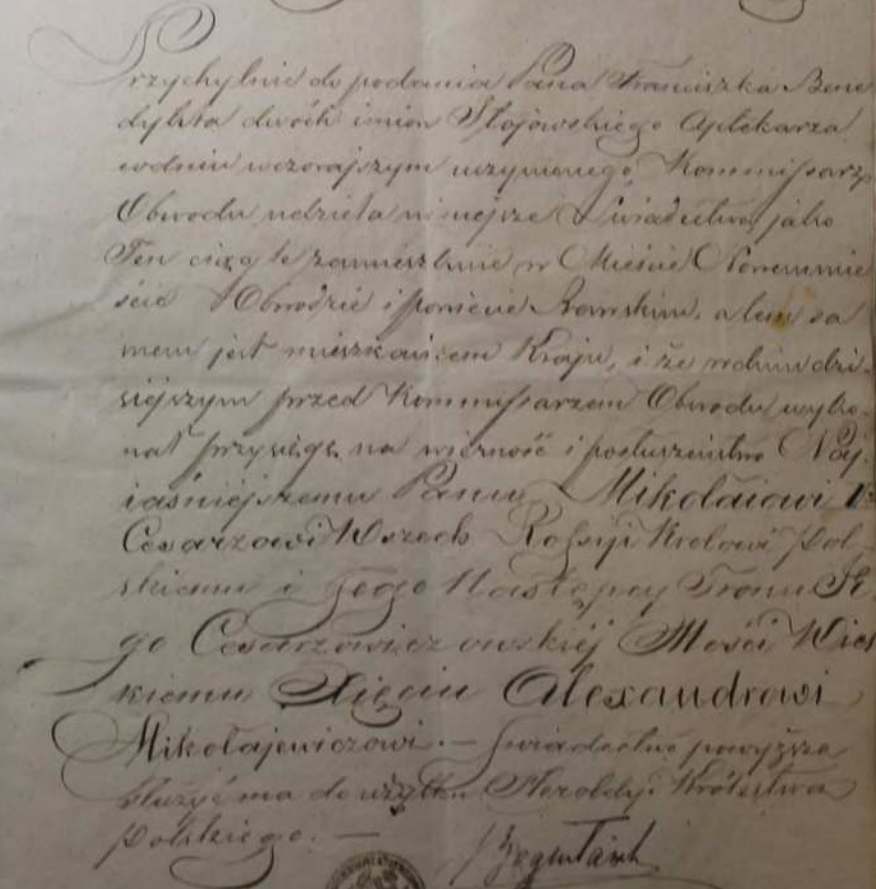 Przychylnie do podania Pana Franciszka Bene
dykta dwóch imion Stojowskiego Aptekarza
wdniu wczorajszym uczynionego, Kommissarz
Obwodu udziela niniejsze Świadectwo, jako
Ten ciągle zamieszkuie w Mieście Nowemmie
ście Obwodzie i powiecie Rawskim, a tem sa
mem jest mieszkańcem Kraju, i że wdniu dzi-
siejszym przed Kommissarzem Obwodu wyko-
nał przysięgę na wierność i posłuszeństwo Nay-
iaśniéjszemu Panu Mikołaiowi I
Cesarzowi Wszech Rossyi Krolowi Pol-
skiemu i Jego Następcy Tronu Je
go Cesarzowiczowskiéj Mości Wiel
kiemu Xięciu Alexandrowi
Mikołajewiczowi. — Swiadectwo powyższe
służyć ma do użytku Heroldyi Królestwa
Polskiego. —